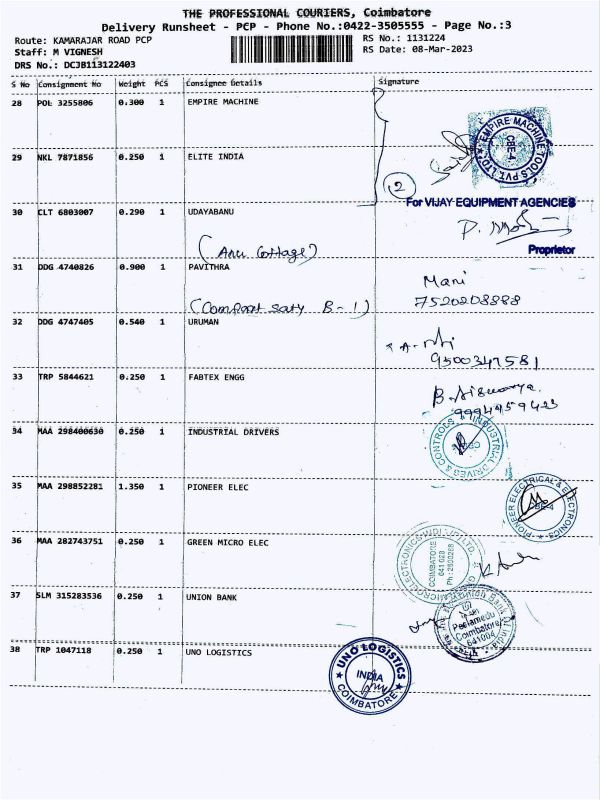 THE PROFESSIONAL COURIERS, Coimbatore
Delivery Runsheet - PCP - Phone No.:0422-3505555 - Page No.:3
Route: KAMARAJAR ROAD PCP
RS No.: 1131224
Staff: M VIGNESH
RS Date: 08-Mar-2023
DRS No.: DCJB113122403
S No Consignment No Weight PCS Consignee Details Signature
28 POL 3255806 0.300 1 EMPIRE MACHINE
EMPIRE MACHINE TOOLS PVT. LTD.
CBE-4
29 NKL 7871856 0.250 1 ELITE INDIA
2
For VIJAY EQUIPMENT AGENCIES
30 CLT 6803007 0.290 1 UDAYABANU
Proprietor
31 DDG 4740826 0.900 1 PAVITHRA
Mani
7520208888
B-1)
32 DDG 4747405 0.540 1 URUMAN
9500347581
33 TRP 5844621 0.250 1 FABTEX ENGG
9994959423
34 MAA 298400630 0.250 1 INDUSTRIAL DRIVERS
INDUSTRIAL DRIVES & CONTROLS
35 MAA 298852281 1.350 1 PIONEER ELEC
PIONEER ELECTRICAL & ELECTRONICS
CBE-4
36 MAA 282743751 0.250 1 GREEN MICRO ELEC
COIMBATORE
641 028
37 SLM 315283536 0.250 1 UNION BANK
Peelamedu
Coimbatore
641004
38 TRP 1047118 0.250 1 UNO LOGISTICS
UNO LOGISTICS
INDIA
COIMBATORE